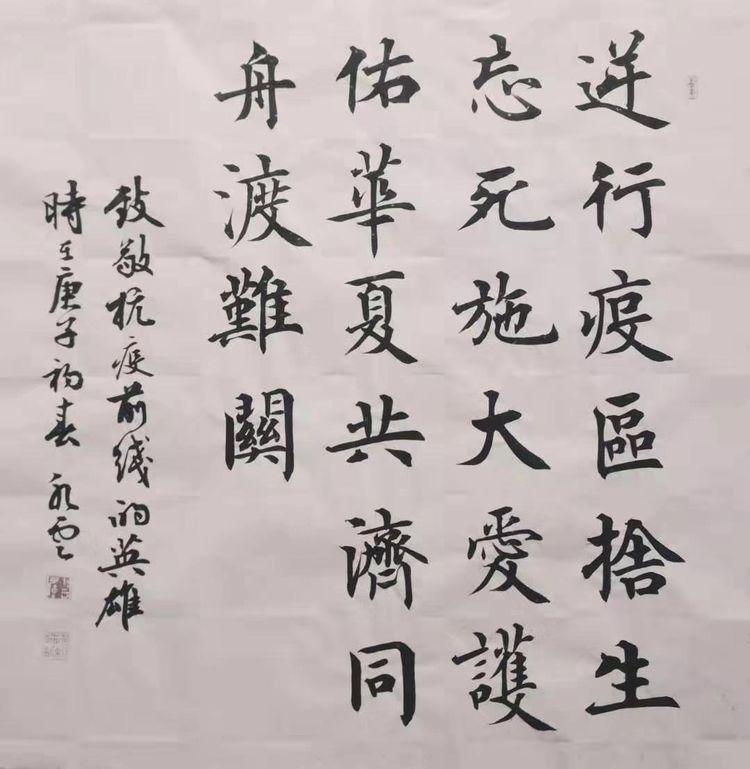 逆行疫區捨生
忘死施大愛護
佑華夏共濟同
舟渡難關
致敬抗疫前线的英雄
時在庚子初春